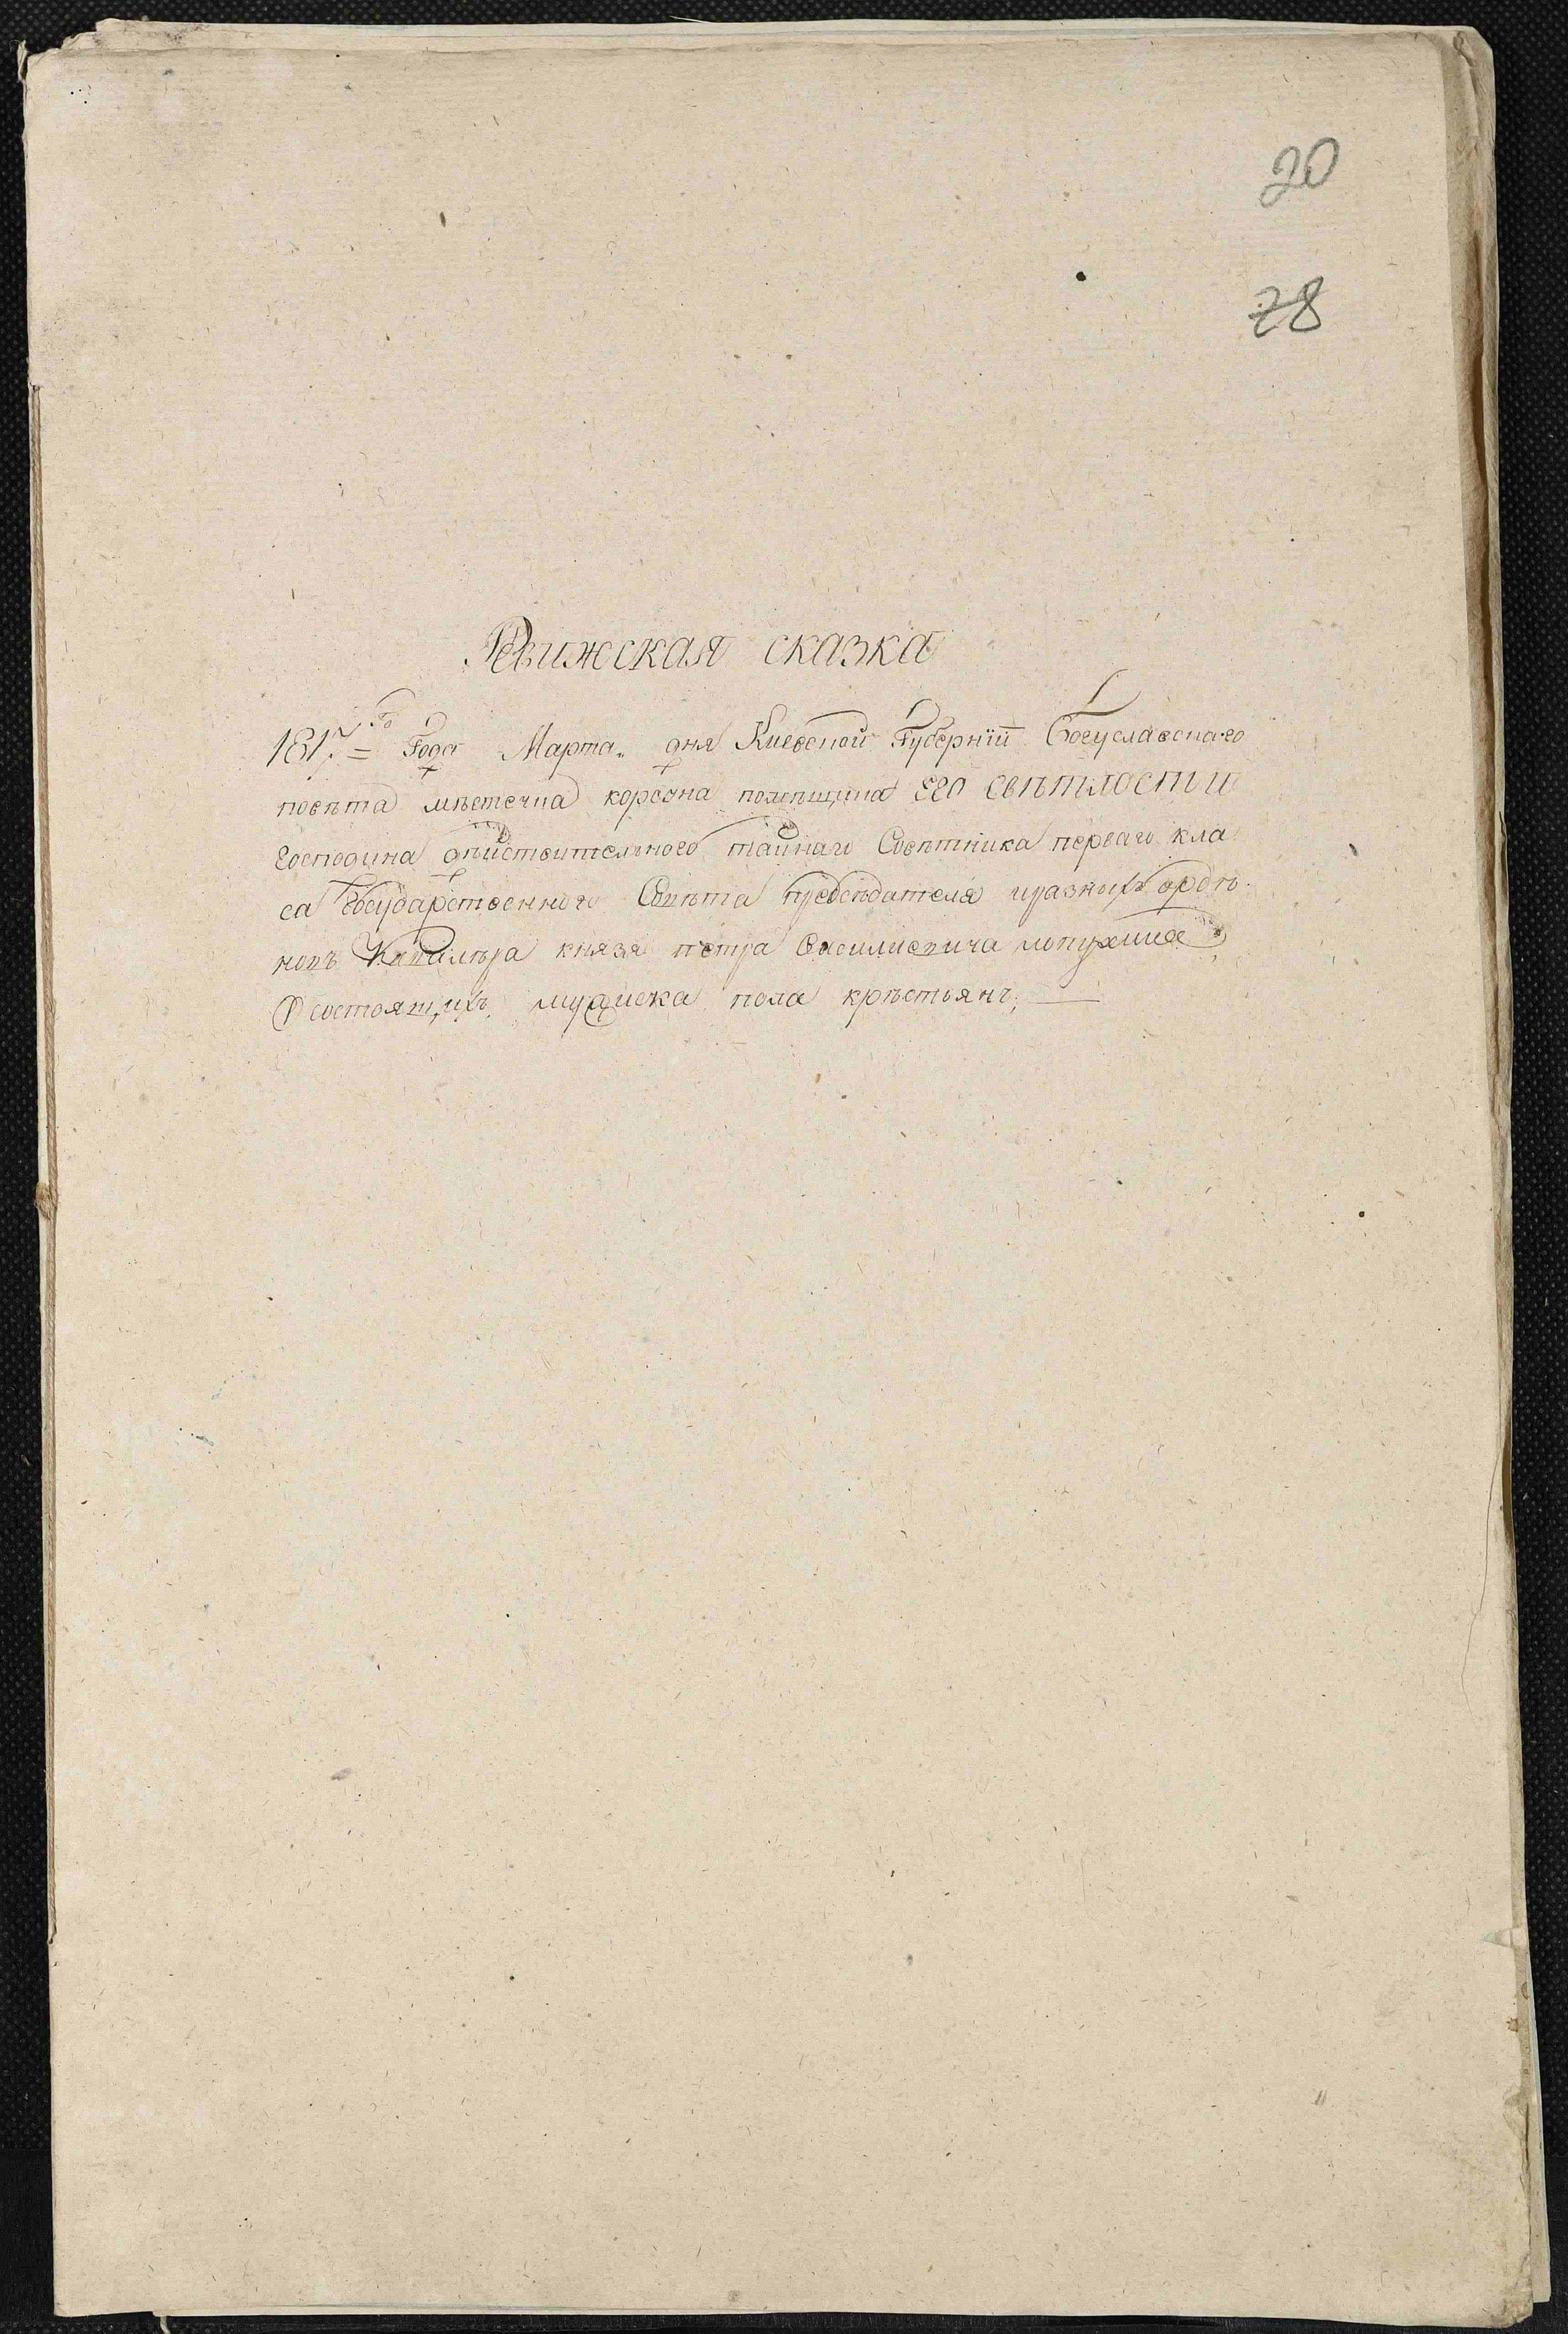 20
78
Ревижская сказка
1817го = Года Марта „ дня Киевской Губернїи Богуславскаго
повѣта мѣстечка корсуна помѣщика Его Свѣтлости
Господина дѣйствительного тайнаго Совѣтника перваго кла
са Государственного Совѣта председателя иразныхъ ордѣ
новъ Кавалѣра князя петра Василиевича лопухина
О состоящихъ мужиска пола крѣстьянъ;